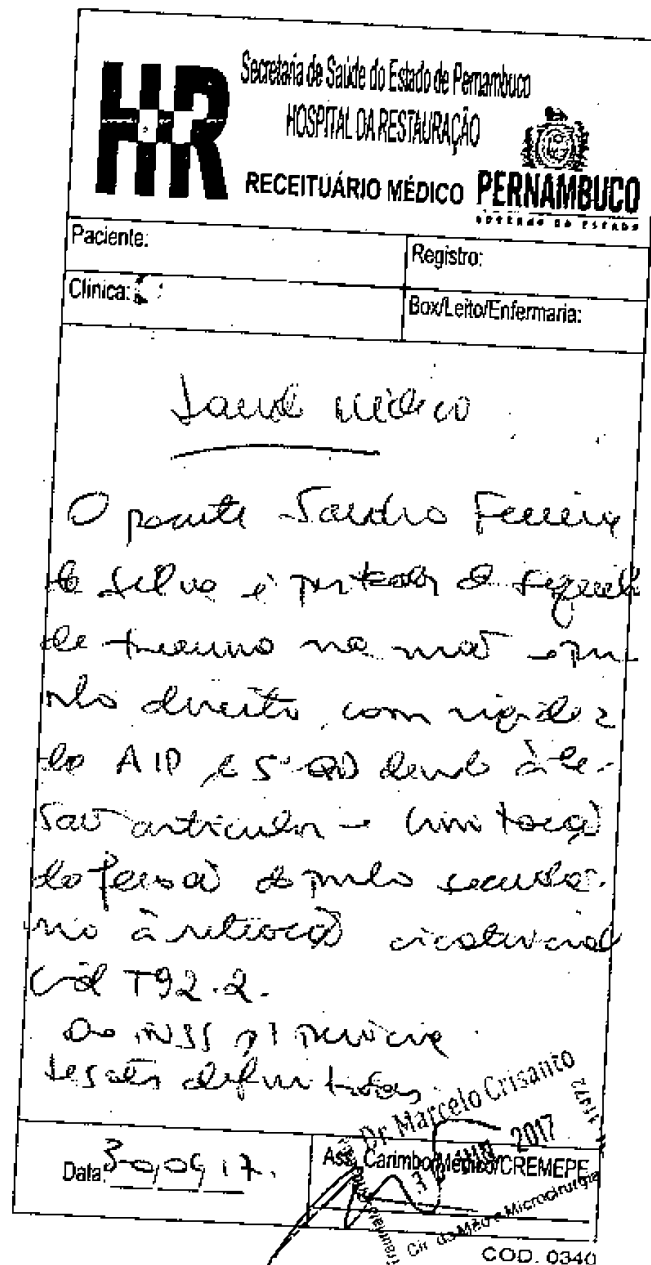 HR
Secretaria de Saúde do Estado de Pernambuco
HOSPITAL DA RESTAURAÇÃO
RECEITUÁRIO MÉDICO
PERNAMBUCO
GOVERNO DO ESTADO
Paciente:
Registro:
Clínica:
Box/Leito/Enfermaria:
Laudo médico
O paciente Sandro Ferreira
da Silva é portador de sequela
de trauma na mão e pu-
nho direito, com rigidez
da AIP do 5º QD devido à le-
são articular e limitação
do punho secundá-
rio à retração cicatricial
CID T92.2.
Ao INSS p/ perícia
Lesões definitivas.
Data: 30/06/17.
Ass. Carimbo/Médico/CREMEPE
Dr. Marcelo Crisanto
2017
Cir. da Mão e Microcirurgia
COD. 0340